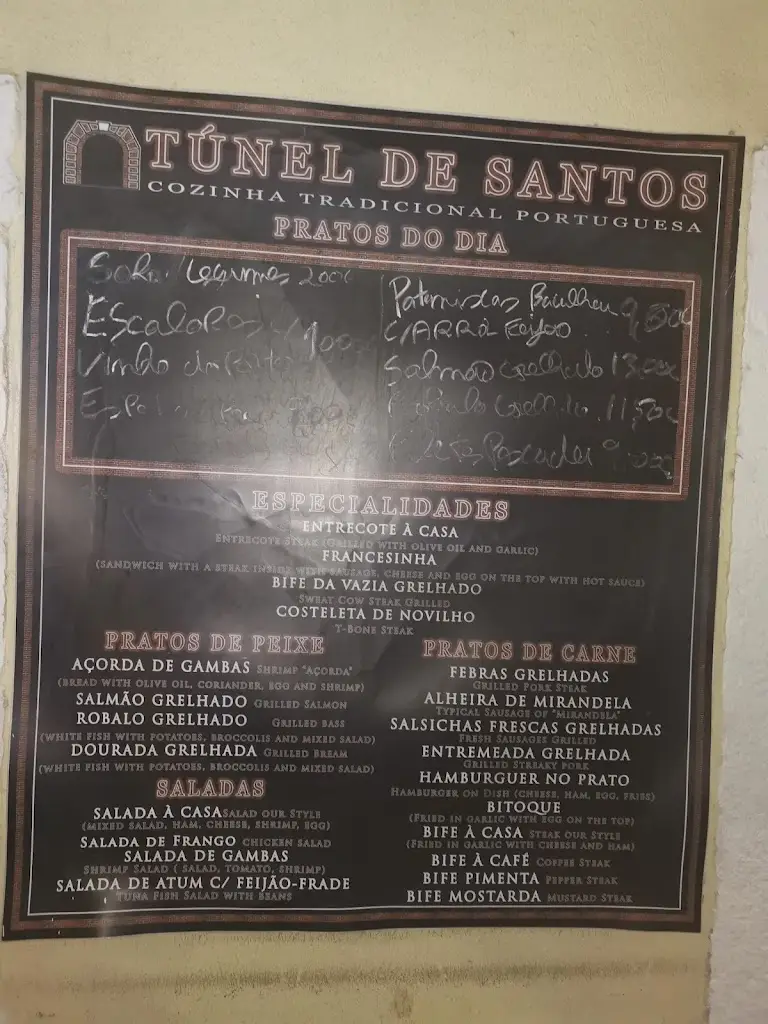 TÚNEL DE SANTOS
COZINHA TRADICIONAL PORTUGUESA
PRATOS DO DIA
Legumes 2,00€
Escalopes
Vinho do Porto
Bacalhau 9,50€
C/ARRÓZ Feijão
Salmão Grelhado 13,00€
Grelhado 11,50€
9,00€
ESPECIALIDADES
ENTRECOTE À CASA
ENTRECOTE STEAK (GRILLED WITH OLIVE OIL AND GARLIC)
FRANCESINHA
(SANDWICH WITH A STEAK INSIDE WITH SAUSAGE, CHEESE AND EGG ON THE TOP WITH HOT SAUCE)
BIFE DA VAZIA GRELHADO
SWEAT COW STEAK GRILLED
COSTELETA DE NOVILHO
T-BONE STEAK
PRATOS DE PEIXE
AÇORDA DE GAMBAS SHRIMP "AÇORDA"
(BREAD WITH OLIVE OIL, CORIANDER, EGG AND SHRIMP)
SALMÃO GRELHADO GRILLED SALMON
ROBALO GRELHADO GRILLED BASS
(WHITE FISH WITH POTATOES, BROCCOLIS AND MIXED SALAD)
DOURADA GRELHADA GRILLED BREAM
(WHITE FISH WITH POTATOES, BROCCOLIS AND MIXED SALAD)
SALADAS
SALADA À CASA SALAD OUR STYLE
(MIXED SALAD, HAM, CHEESE, SHRIMP, EGG)
SALADA DE FRANGO CHICKEN SALAD
SALADA DE GAMBAS
SHRIMP SALAD ( SALAD, TOMATO, SHRIMP)
SALADA DE ATUM C/ FEIJÃO-FRADE
TUNA FISH SALAD WITH BEANS
PRATOS DE CARNE
FEBRAS GRELHADAS
GRILLED PORK STEAK
ALHEIRA DE MIRANDELA
TYPICAL SAUSAGE OF "MIRANDELA"
SALSICHAS FRESCAS GRELHADAS
FRESH SAUSAGES GRILLED
ENTREMEADA GRELHADA
GRILLED STREAKY PORK
HAMBURGUER NO PRATO
HAMBURGER ON DISH (CHEESE, HAM, EGG, FRIES)
BITOQUE
(FRIED IN GARLIC WITH EGG ON THE TOP)
BIFE À CASA STEAK OUR STYLE
(FRIED IN GARLIC WITH CHEESE AND HAM)
BIFE À CAFÉ COFFEE STEAK
BIFE PIMENTA PEPPER STEAK
BIFE MOSTARDA MUSTARD STEAK